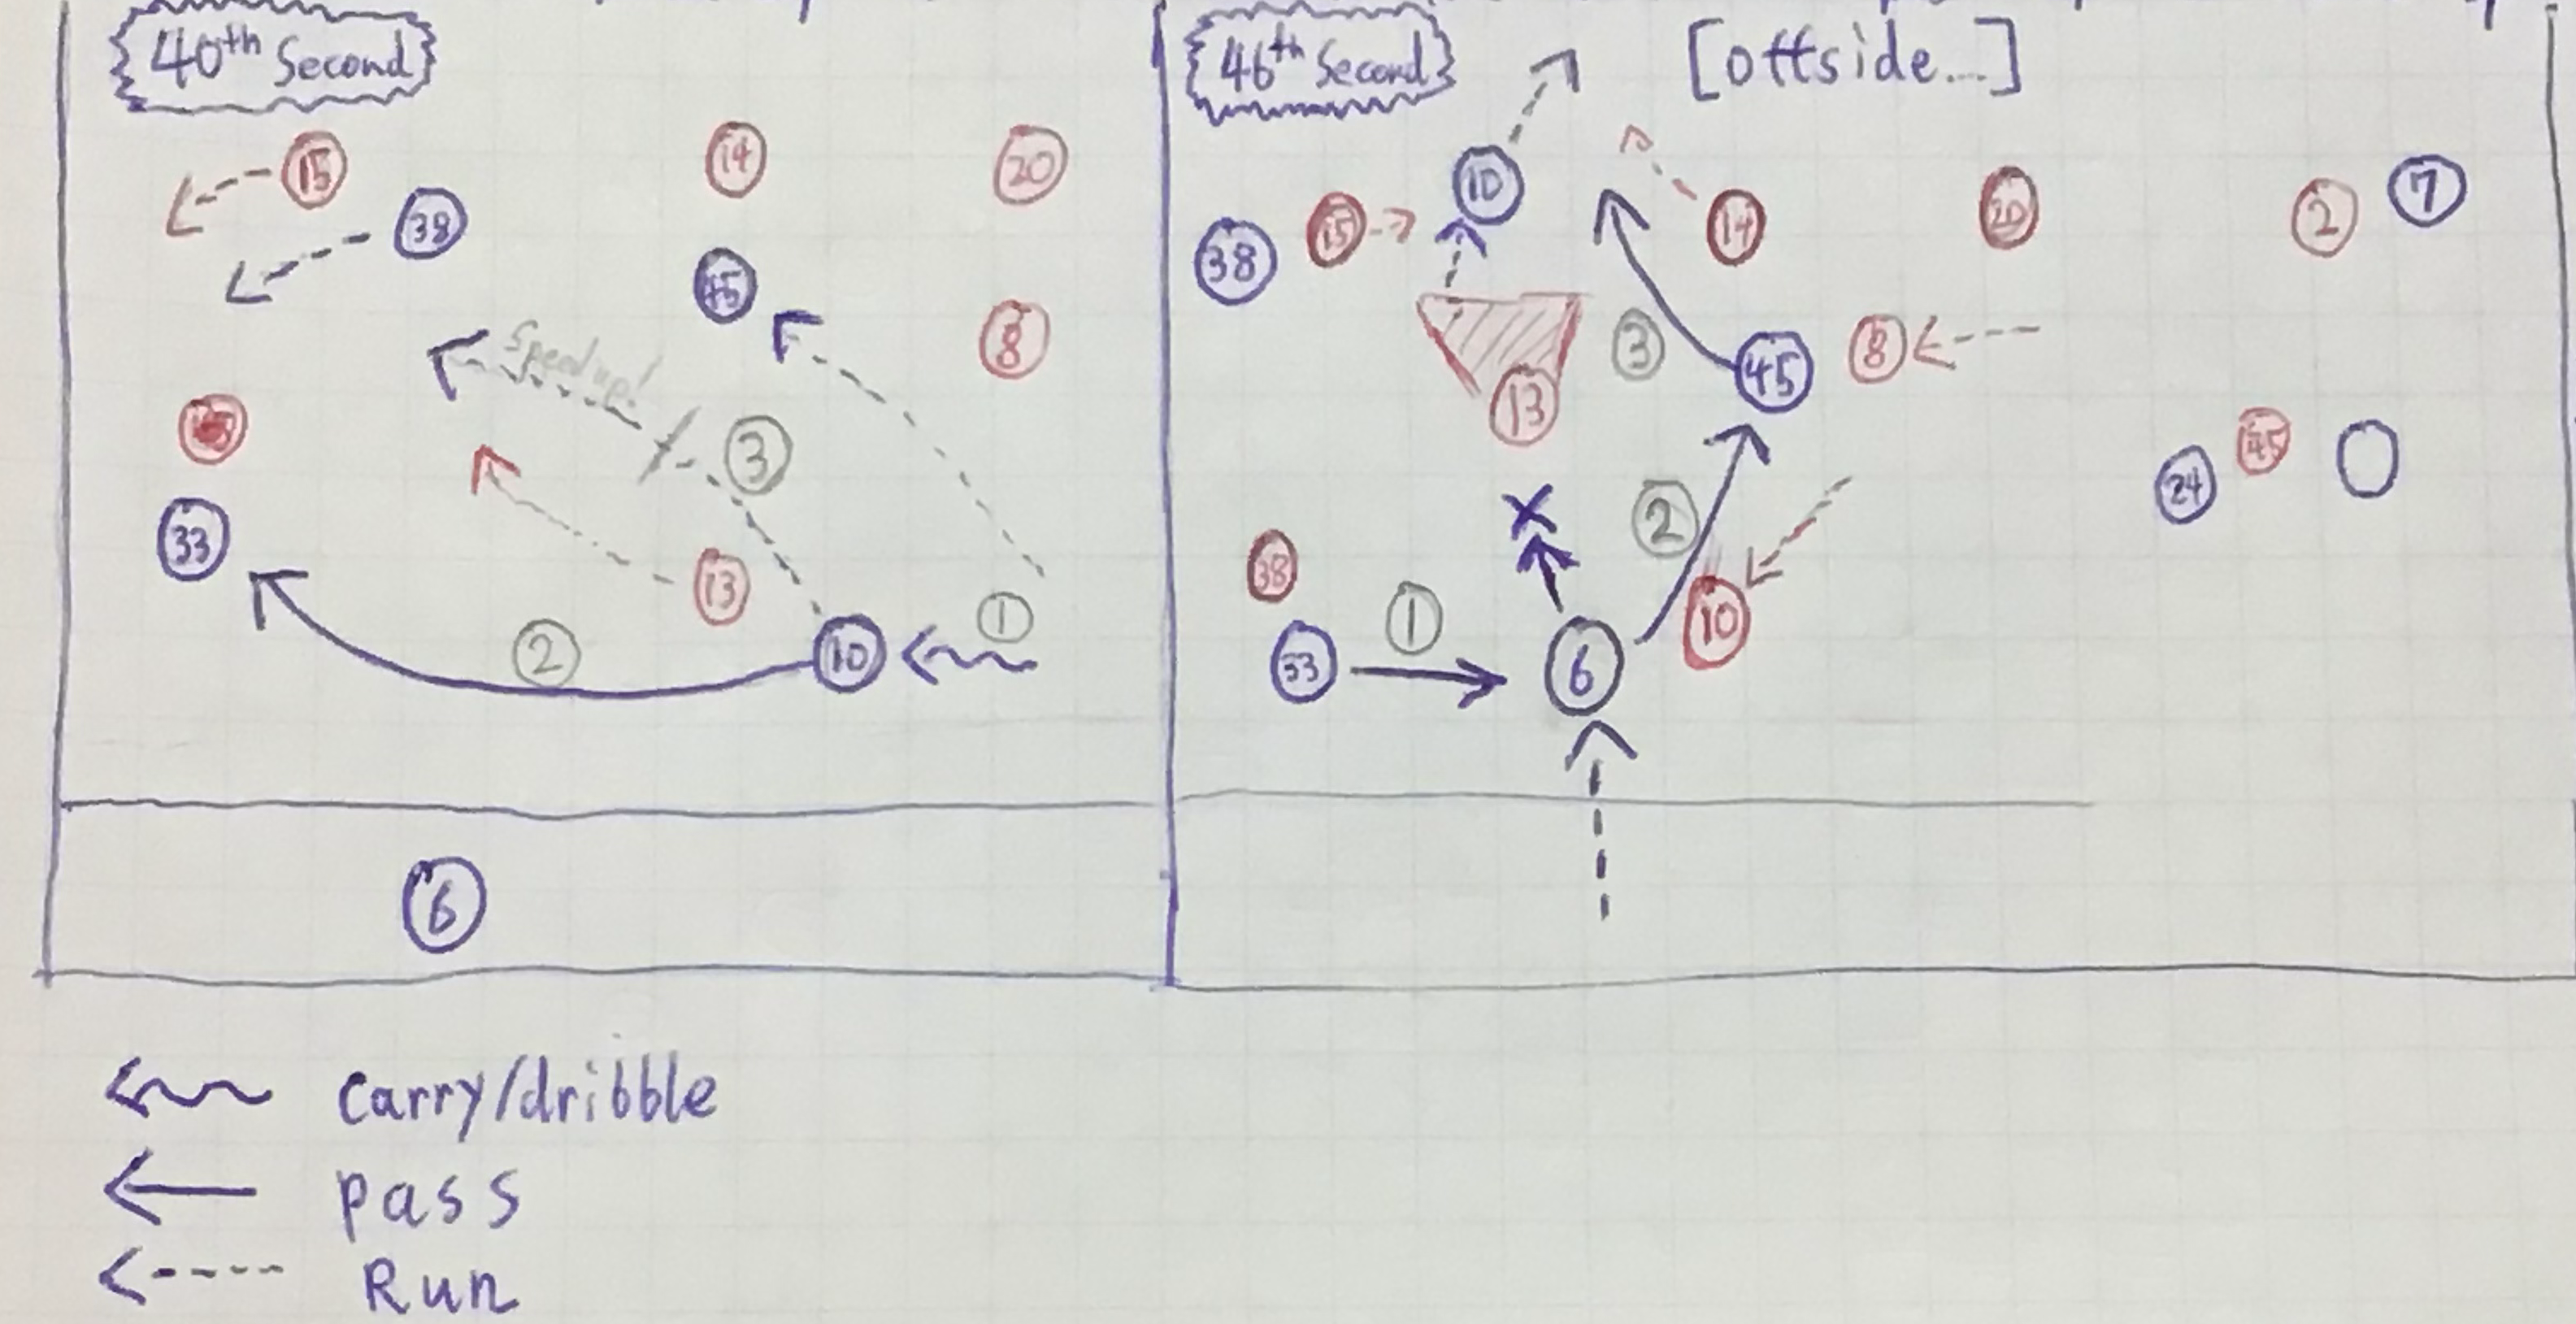 40th Second
15
14
20
38
45
8
Speed up!
3
33
13
2
10
1
6
46th Second
[offside...]
10
15
14
20
2
7
38
3
45
8
13
45
24
2
38
1
10
33
6
carry/dribble
pass
Run